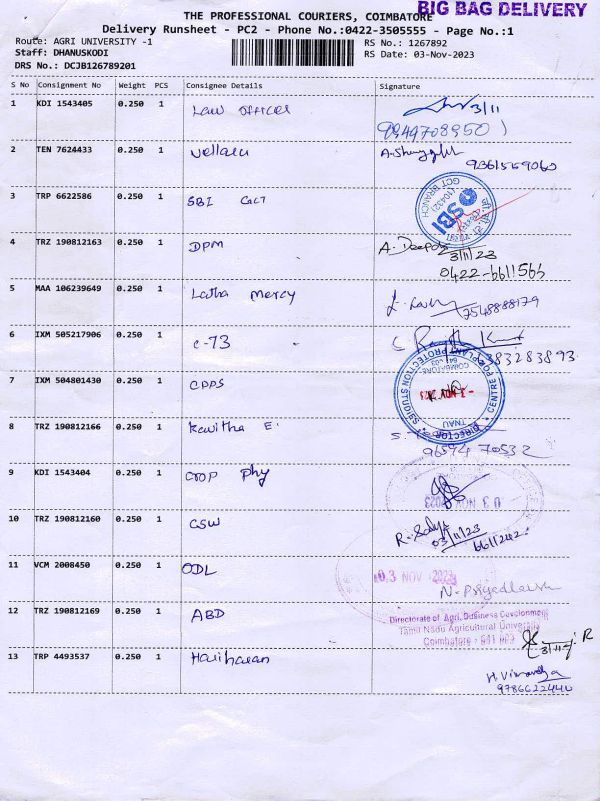 BIG BAG DELIVERY
THE PROFESSIONAL COURIERS, COIMBATORE
Delivery Runsheet - PC2 - Phone No.:0422-3505555 - Page No.:1
Route: AGRI UNIVERSITY -1
RS No.: 1267892
Staff: DHANUSKODI
RS Date: 03-Nov-2023
DRS No.: DCJB126789201
S No Consignment No Weight PCS Consignee Details Signature
1 KDI 1543405 0.250 1 Law officer 3/11
9944708950
2 TEN 7624433 0.250 1 Vellaru
9361559060
3 TRP 6622586 0.250 1 SBI
SBI
GCT BRANCH
4 TRZ 190812163 0.250 1 DPM A. Deepa
3/11/23
0422-6611566
5 MAA 106239649 0.250 1 Latha mercy
7548888179
6 IXM 505217906 0.250 1 C-73
383283893
7 IXM 504801430 0.250 1 CPPS
CENTRE FOR PLANT PROTECTION STUDIES
DIRECTOR
TNAU
COIMBATORE
8 TRZ 192812166 0.250 1 Kavitha E.
96594 70532
9 KDI 1543404 0.250 1 crop phy
03 NOV 2023
10 TRZ 190812160 0.250 1 CSW
03/11/23
6611242
11 VCM 2008450 0.250 1 ODL
03 NOV 2023
12 TRZ 190812169 0.250 1 ABD
Directorate of Agri. Business Development
Tamil Nadu Agricultural University
Coimbatore - 641 003
13 TRP 4493537 0.250 1 Hariharan
9786622440